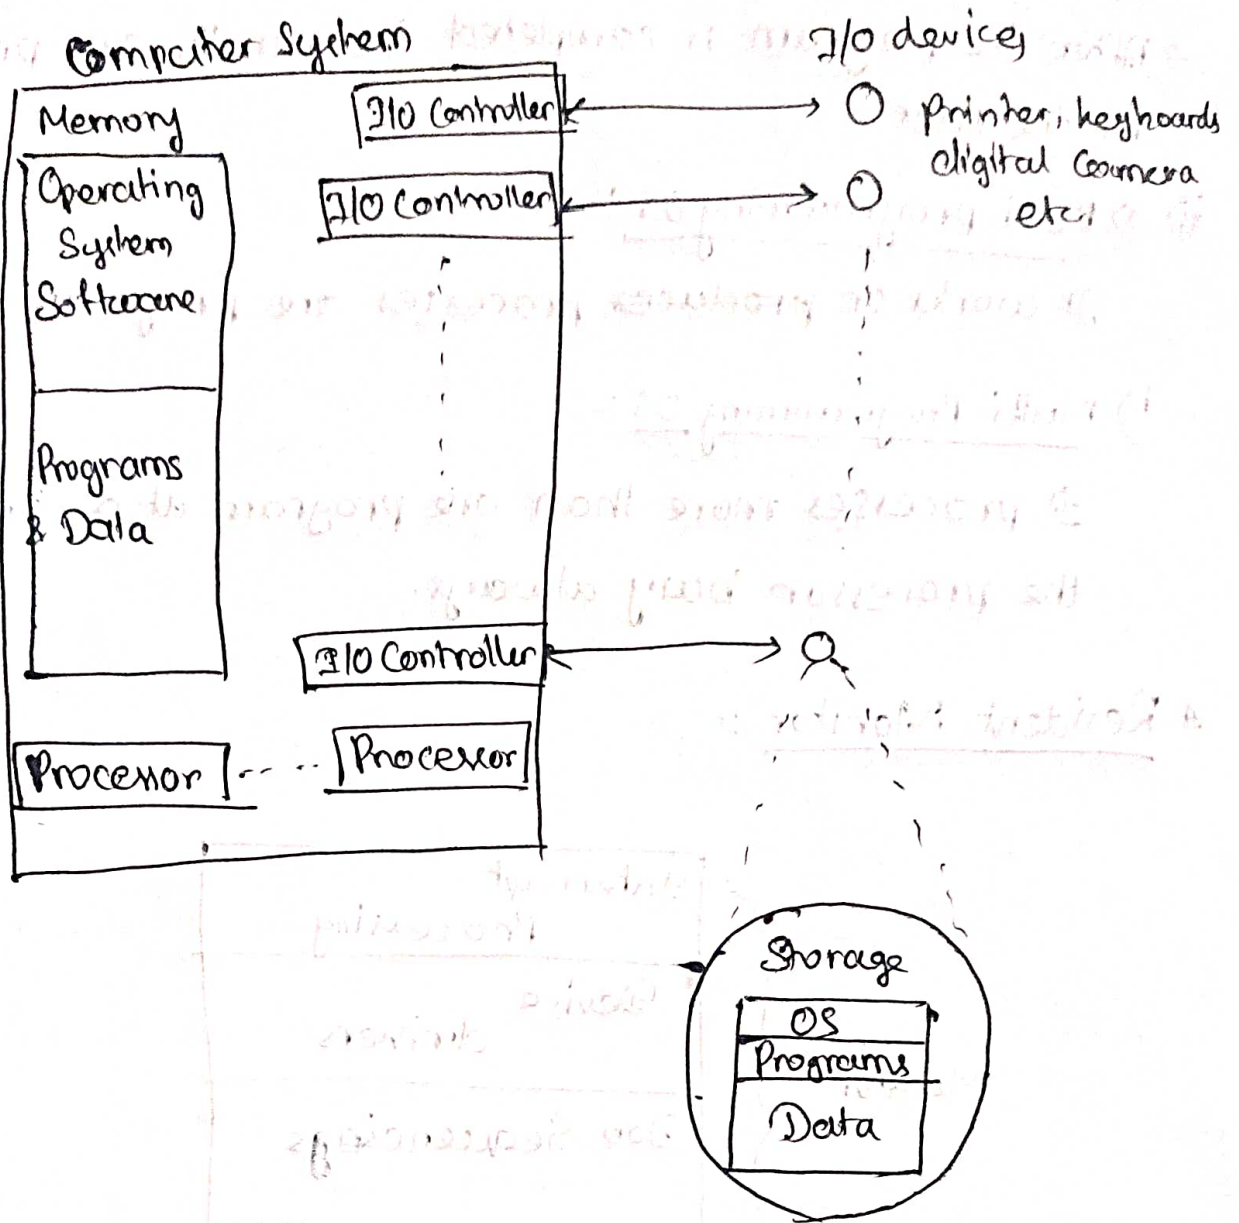 Computer System
I/O devices
Memory
I/O Controller
Printer, keyboards
digital Camera
etc.
Operating
System
Software
I/O Controller
Programs
& Data
I/O Controller
Processor
Processor
Storage
OS
Programs
Data